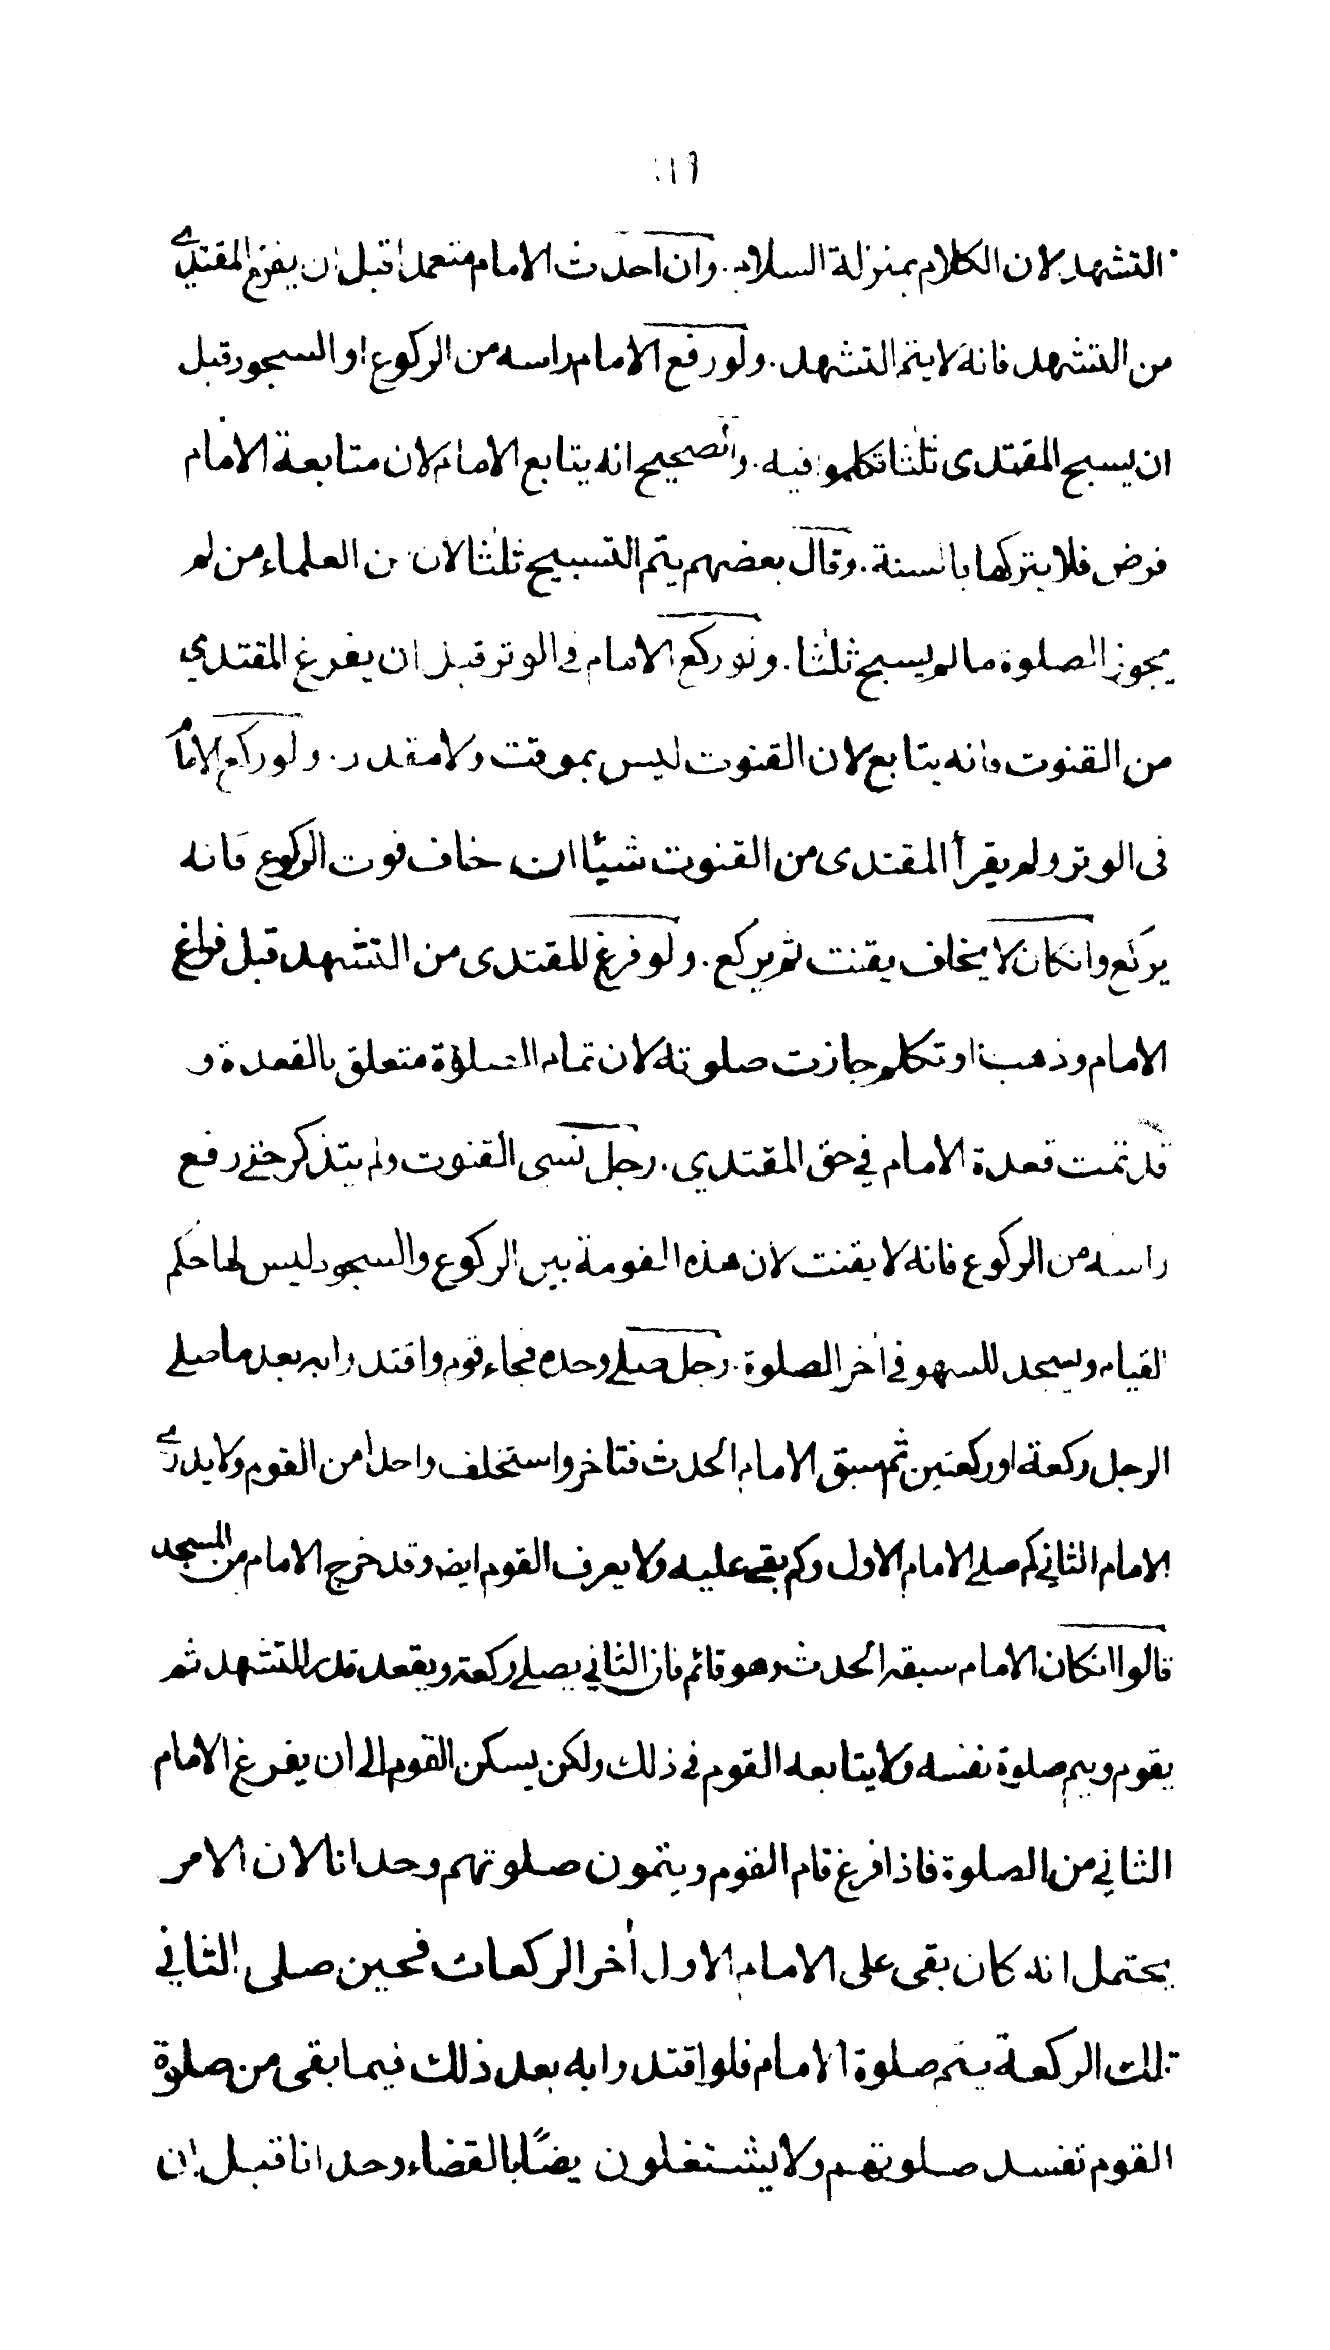 ١١٦
التشهد لان الكلام بمنزلة السلام. وان احدث الامام متعمدا قبل ان يفرغ المقتدي
من التشهد فانه لا يتم التشهد. ولو رفع الامام راسه من الركوع او السجود قبل
ان يسبح المقتدى ثلثا تكلموا فيه. والصحيح انه يتابع الامام لان متابعة الامام
فرض فلا يتركها بالسنة. وقال بعضهم يتم التسبيح ثلثا لان من العلماء من لم
يجوز الصلوة ما لم يسبح ثلثا. ولو ركع الامام في الوتر قبل ان يفرغ المقتدي
من القنوت فانه يتابع لان القنوت ليس بموقت ولا مقدر. ولو ركع الامام
فى الوتر ولم يقرأ المقتدى من القنوت شيئا ان خاف فوت الركوع فانه
يركع وانكان لا يخاف يقنت ثم يركع. ولو فرغ المقتدى من التشهد قبل فراغ
الامام وذهب او تكلم جازت صلوته لان تمام الصلوة متعلق بالقعدة و
قد تمت قعدة الامام في حق المقتدي. رجل نسى القنوت ولم يتذكر حتى رفع
راسه من الركوع فانه لا يقنت لان هذه القومة بين الركوع والسجود ليس لها حكم
القيام ويسجد للسهو في اخر الصلوة. رجل صلى وحده فجاء قوم واقتدوا به بعد ما صلى
الرجل ركعة او ركعتين ثم سبق الامام الحدث فتاخر واستخلف واحدا من القوم ولا يدرى
الامام الثاني كم صلى الامام الاول وكم بقى عليه ولا يعرف القوم ايضا وقد خرج الامام من المسجد
قالوا انكان الامام سبقه الحدث وهو قائم فان الثاني يصلى ركعة ويقعد قدر التشهد ثم
يقوم ويتم صلوة نفسه ولا يتابعه القوم في ذلك ولكن يسكن القوم الى ان يفرغ الامام
الثاني من الصلوة فاذا فرغ قام القوم ويتمون صلوتهم وحدانا لان الامر
يحتمل انه كان بقى على الامام الاول أخر الركعات فحين صلى الثاني
تلك الركعة يتم صلوة الامام فلو اقتدوا به بعد ذلك فيما بقى من صلوة
القوم تفسد صلوتهم ولا يشتغلون يضًا بالقضاء وحدانا قبل ان